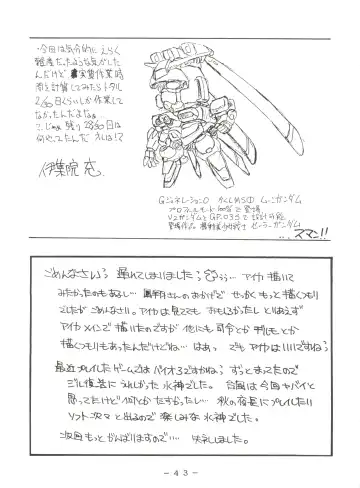 ・今回は気分的にえらく
難産だったような気がした
んだけど 実質作業時
間を計算してみたらトータル
2/30日くらいしか作業して
なかったんだよなぁ
で、じゃあ残り 28/30日は
何やってたんだ オレは!?
伊集院 忞。
GジェネレーションO かくしMSの ムーンガンダム
プロフィールモード100%で登場
V2ガンダムとGP-03Sで設計可能
登場作品 機動美少女戦士 セーラーガンダム
...スマン!!
ごめんなさいよう 遅れてしまいましたよう うぅ… アイカ描いて
みたかったのもあるし… さんのおかげで せっかく もっと描くつもり
でしたが ごめんなさい。アイカは見てても おもしろかったし とりあえず
アイカメインで描いたのですが 他にも 司令とか とか
描くつもりもあったんだけどね… はぁっ でも アイカはいいですねぇ
最近プレイしたゲームではバイオ3ですかねぇ ずっとまってたので
ジル復活に うれしかった 水神でした。台風は今回ヤバイと
思ってたけど 何とかたすかった… 秋の夜長にプレイしたい
ソフト次々と出るので 楽しみな 水神でした。
次回もっとがんばりますので… 失礼しました。
－43－